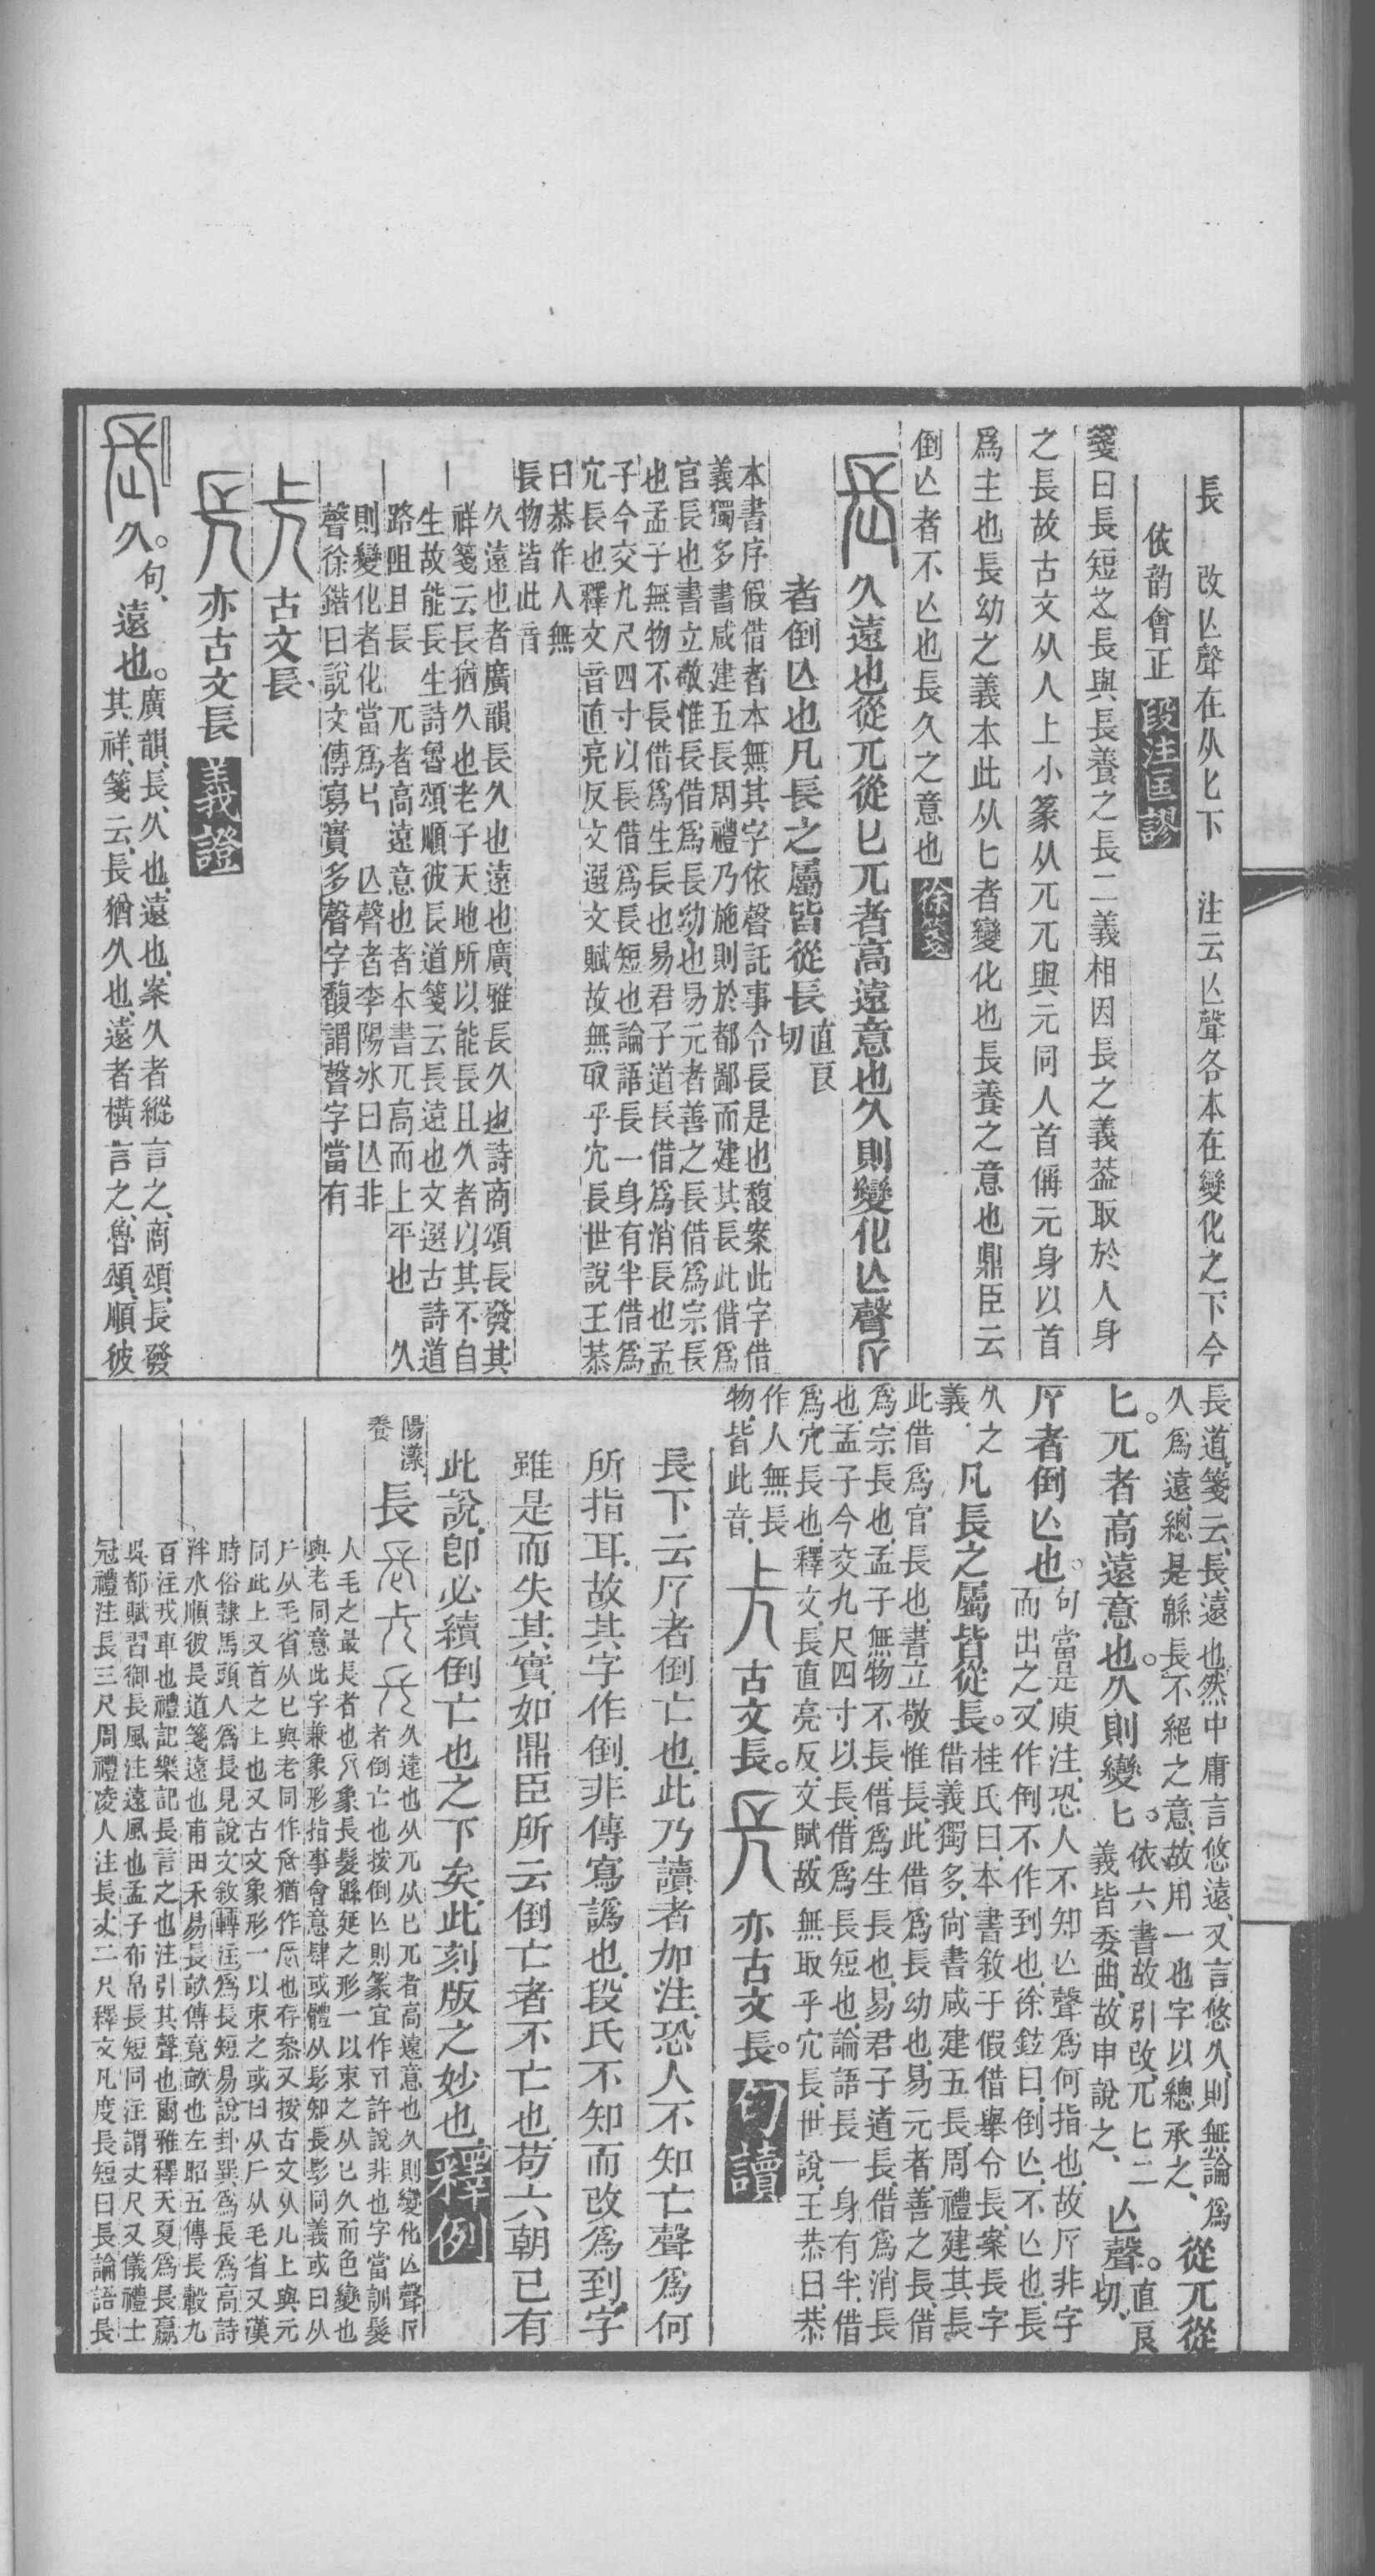 長　改亾聲在从匕下　注云亾聲各本在變化之下今
依韵會正　段注匡謬
箋曰長短之長與長養之長二義相因長之義葢取於人身
之長故古文从人上小篆从兀兀與元同人首偁元身以首
爲主也長幼之義本此从匕者變化也長養之意也鼎臣云
倒亾者不亾也長久之意也　徐箋
久遠也從兀從匕兀者高遠意也久則變化亾聲𠂾
者倒亾也凡長之屬皆從長直良切
本書序假借者本無其字依聲託事令長是也馥案此字借
義獨多書咸建五長周禮乃施則於都鄙而建其長此借爲
官長也書立敬惟長借爲長幼也易元者善之長借爲宗長
也孟子無物不長借爲生長也易君子道長借爲消長也孟
子今交九尺四寸以長借爲長短也論語長一身有半借爲
宂長也釋文音直亮反文選文賦故無取乎宂長世說王恭
曰恭作人無
長物皆此音
久遠也者廣韻長久也遠也廣雅長久也詩商頌長發其
祥箋云長猶久也老子天地所以能長且久者以其不自
生故能長生詩魯頌順彼長道箋云長遠也文選古詩道
路阻且長　兀者高遠意也者本書兀高而上平也　久
則變化者化當爲𠤎　亾聲者李陽冰曰亾非
聲徐鍇曰說文傳寫實多聲字馥謂聲字當有
古文長
亦古文長　義證
久。句、遠也。廣韻、長、久也、遠也、案久者縱言之、商頌、長發
其祥、箋云、長猶久也、遠者橫言之、魯頌、順彼
長道、箋云、長、遠也、然中庸言悠遠、又言悠久、則無論爲
久爲遠、總是緜長不絕之意、故用一也字以總承之、從兀從
匕。兀者高遠意也。久則變匕。依六書故引改、兀匕二
義皆委曲、故申說之、亾聲。直良切、
𠂾者倒亾也。句當是庾注、恐人不知亾聲爲何指也、故𠂾非字
而出之、又作倒不作到也、徐鉉曰、倒亾、不亾也、長
久之義、凡長之屬皆從長。桂氏曰、本書敘于假借舉令長、案長字
借義獨多、尙書咸建五長、周禮建其長
此借爲官長也、書立敬惟長、此借爲長幼也、易元者、善之長、借
爲宗長也、孟子無物不長、借爲生長也、易君子道長、借爲消長
也、孟子今交九尺四寸以長、借爲長短也、論語長一身有半、借
爲宂長也、釋文、長直亮反、文賦、故無取乎宂長、世說、王恭曰、恭
作人無長
物、皆此音、古文長。亦古文長。句讀
長下云𠂾者倒亡也、此乃讀者加注、恐人不知亡聲爲何
所指耳、故其字作倒、非傳寫譌也、段氏不知而改爲到、字
雖是而失其實、如鼎臣所云倒亡者不亡也、苟六朝已有
此說、卽必續倒亡也之下矣、此刻版之妙也、釋例
陽漾
養　長　久遠也从兀从匕兀者高遠意也久則變化亾聲𠂾
者倒亡也按倒亾則篆宜作許說非也字當訓髮
人毛之最長者也象長髮緜延之形一以束之从匕久而色變也
與老同意此字兼象形指事會意肆或體从髟知長髟同義或曰从
𠂆从毛省从匕與老同作猶作也存參又按古文从儿上與元
同此上又首之上也又古文象形一以束之或曰从𠂆从毛省又漢
時俗隸馬頭人爲長見說文敘轉注爲長短易說卦巽爲長爲高詩
泮水順彼長道箋遠也甫田禾易長畝傳竟畝也左昭五傳長轂九
百注戎車也禮記樂記長言之也注引其聲也爾雅釋天夏爲長嬴
吳都賦習御長風注遠風也孟子布帛長短同注謂丈尺又儀禮士
冠禮注長三尺周禮凌人注長丈二尺釋文凡度長短曰長論語長